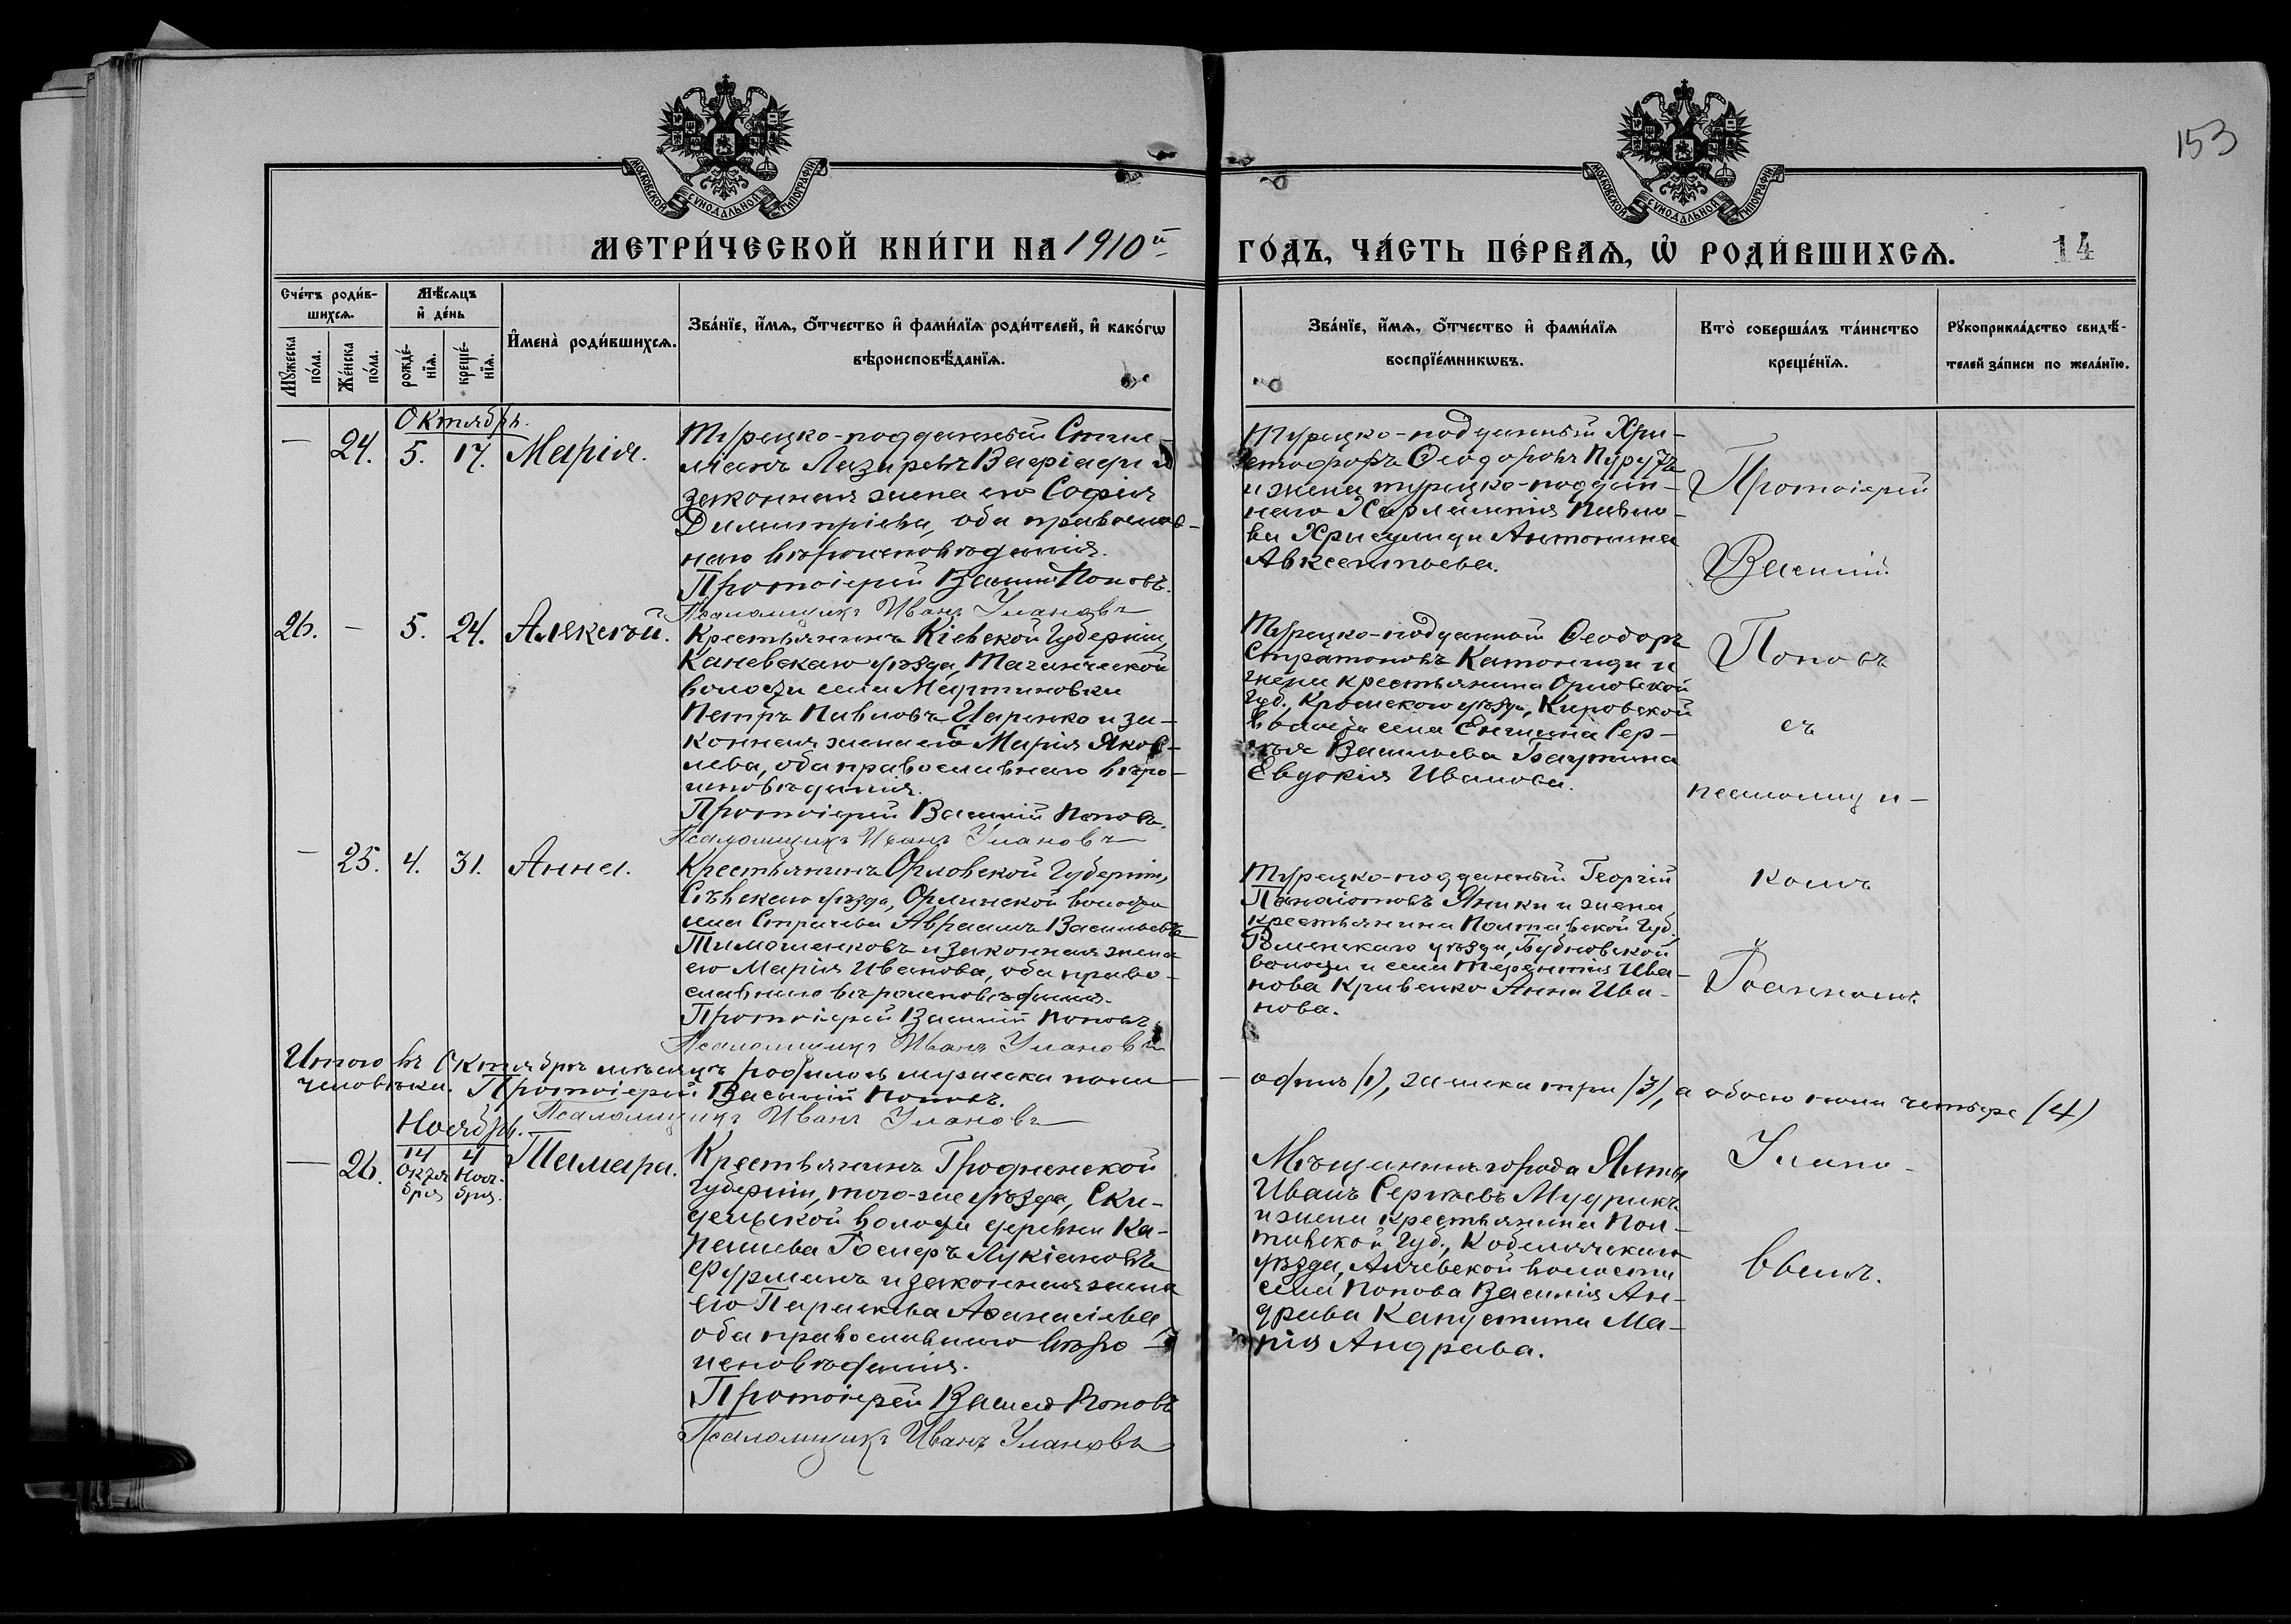 153
МОСКОВСКОЙ СУНОДАЛЬНОЙ ТИПОГРАФІИ
МОСКОВСКОЙ СУНОДАЛЬНОЙ ТИПОГРАФІИ
МЕТРИ́ЧЕСКОЙ КНИ́ГИ НА 1910й
ГО́ДЪ, ЧА́СТЬ ПЕ́РВАѦ, Ѽ РОДИ́ВШИХСѦ. 14
Сче́тъ роди́в-
шихсѧ.
Мѣ́сѧцъ
и҆ де́нь
Мꙋжеска по́ла.
Же́нска по́ла.
рожде́-нїѧ.
креще́-нїѧ.
И҆мена̀ роди́вшихсѧ.
Зва́нїе, и҆́мѧ, ѻ҆́тчество и҆ фами́лїѧ роди́телей, и҆ како́гѡ
вѣроисповѣ́данїѧ.
Зва́нїе, и҆́мѧ, ѻ҆́тчество и҆ фами́лїѧ
воспрїе́мникѡвъ.
Кто̀ соверша́лъ та́инство
креще́нїѧ.
Рꙋкоприкла́дство свидѣ́-
телей за́писи по жела́нїю.
Октябрь.
— 24. 5. 17. Марія.
Турецко-подданный Стили-
ліанъ Лазаревъ и
законная жена его Софія
Димитріева, оба православ-
наго вѣроисповѣданія.
Протоіерей Василій Поповъ.
Псаломщикъ Иванъ Улановъ
Турецко-подданный Хри-
стофоръ Ѳеодоровъ
и жена турецко-поддан-
наго Харлампія Павло-
ва Антонина
Авксентьева.
26. — 5. 24. Алексѣй.
Крестьянинъ Кіевской Губерніи,
Каневскаго уѣзда, Таганчской
волости села Мартыновки
Петръ Павловъ Царенко и за-
конная жена его Марія Яков-
лева, оба православнаго вѣро-
исповѣданія.
Протоіерей Василій Поповъ.
Псаломщикъ Иванъ Улановъ
Турецко-подданный Ѳеодоръ
Стратоновъ и
жена крестьянина Орловской
Губ., Кромскаго уѣзда, Кировской
волости села Сер-
гѣя Васильева
Евдокія Иванова.
— 25. 4. 31. Анна.
Крестьянинъ Орловской Губерніи,
Сѣвскаго уѣзда, Орлинской волости
села Страчева Авраамъ Васильевъ
Тимошенковъ и законная жена
его Марія Иванова, оба право-
славнаго вѣроисповѣданія.
Протоіерей Василій Поповъ.
Псаломщикъ Иванъ Улановъ
Турецко-подданный Георгій
Панаіотовъ Яники и жена
крестьянина Полтавской Губ.
Роменскаго уѣзда,
волости и села Терентія Ива-
нова Кривенко Анна Ива-
нова.
Итого въ Октябрѣ мѣсяцѣ родилось мужеска пола — одинъ (1), женска три (3), а обоего пола четыре (4)
человѣка. Протоіерей Василій Поповъ.
Псаломщикъ Иванъ Улановъ
Ноябрь.
— 26. 14 Октября 4 Ноября. Тамара.
Крестьянинъ Гродненской
Губерніи, того-же уѣзда, Ски-
дельской волости деревни Ка-
Іосифъ Лукіановъ
Фурманъ и законная жена
его Параскева Аѳанасіева
оба православнаго вѣро-
исповѣданія.
Протоіерей Василій Поповъ
Псаломщикъ Иванъ Улановъ
Мѣщанинъ города Ялты
Иванъ Сергѣевъ Мудрикъ
и жена крестьянина Пол-
тавской Губ., Кобелякскаго
уѣзда, волости
села Попова Василія Ан-
дреева Капустина Ма-
рія Андреева.
Протоіерей
Василій
Поповъ
съ
псаломщи-
комъ
Іоанномъ
Улано-
вымъ.